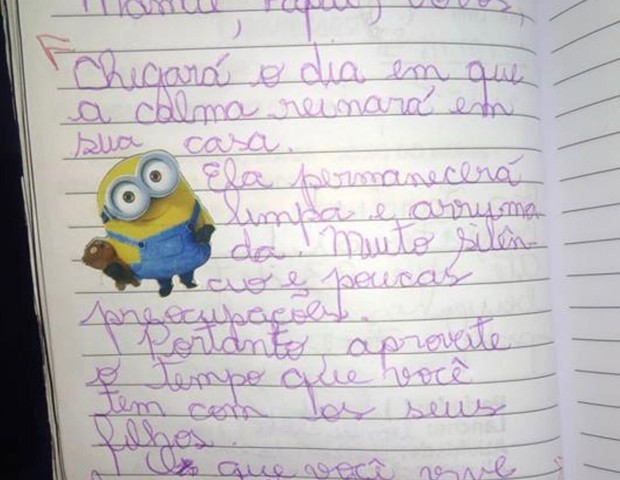 Mamãe, Papai, Vovós,
Chegará o dia em que
a calma reinará em
sua casa.
Ela permanecerá
limpa e arruma-
da. Muito silên-
cio e poucas
preocupações.
Portanto, aproveite
o tempo que você
tem com os seus
filhos.
que você vive